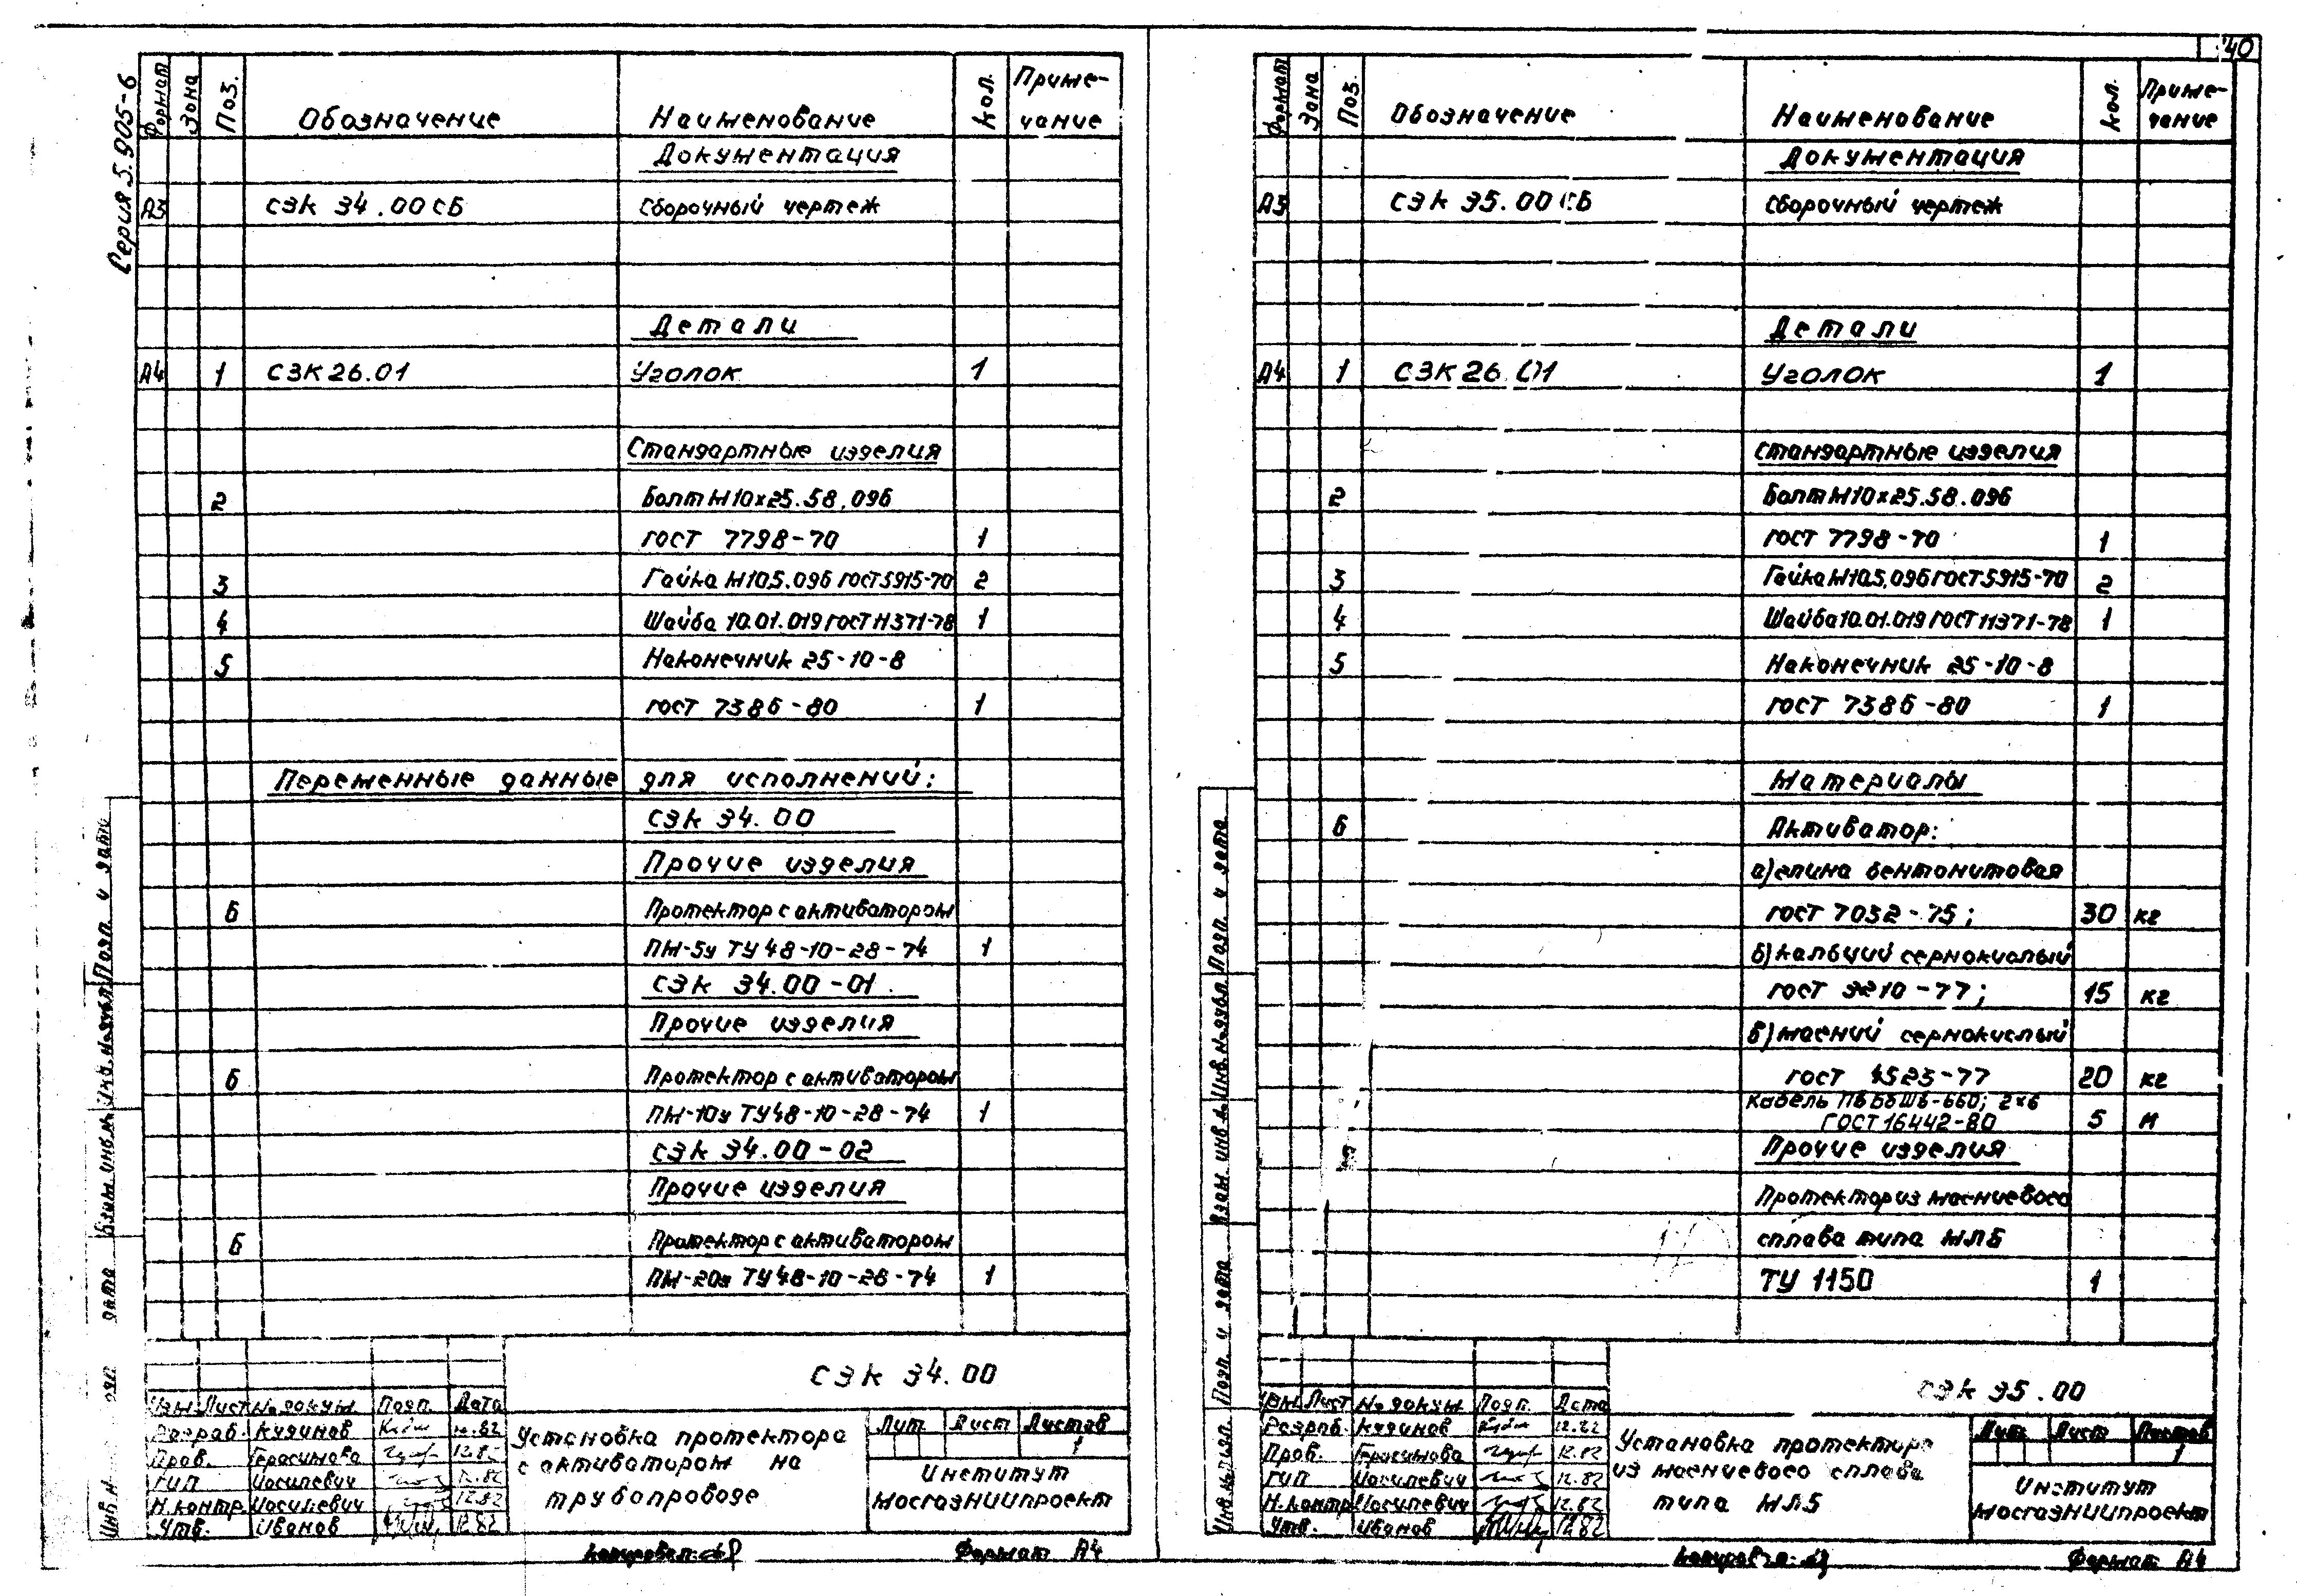 40
Серия 5.905-6
Формат Зона Поз. Обозначение Наименование Кол. Приме-
чание
Документация
А3 СЗК 34.00 СБ Сборочный чертеж
Детали
А4 1 СЗК 26.01 Уголок 1
Стандартные изделия
2 Болт М10х25.58.096
ГОСТ 7798-70 1
3 Гайка М10.5.096 ГОСТ 5915-70 2
4 Шайба 10.01.019 ГОСТ 11371-78 1
5 Наконечник 25-10-8
ГОСТ 7386-80 1
Переменные данные для исполнений:
СЗК 34.00
Прочие изделия
6 Протектор с активатором
ПМ-5у ТУ 48-10-28-74 1
СЗК 34.00-01
Прочие изделия
6 Протектор с активатором
ПМ-10у ТУ 48-10-28-74 1
СЗК 34.00-02
Прочие изделия
6 Протектор с активатором
ПМ-20у ТУ 48-10-28-74 1
Подп. и дата
Инв. № дубл.
Взам. инв. №
дата
Инв. №
СЗК 34.00
Изм. Лист № докум. Подп. Дата
Разраб. Кудинов 12.82
Пров. Герасимова 12.82
ГИП Иосилевич 12.82
Н.контр. Иосилевич 12.82
Утв. Иванов 12.82
Установка протектора
с активатором на
трубопроводе
Лит. Лист Листов
1
Институт
МосгазНИИпроект
Копировал: Формат А4
Формат Зона Поз. Обозначение Наименование Кол. Приме-
чание
Документация
А3 СЗК 35.00 СБ Сборочный чертеж
Детали
А4 1 СЗК 26.01 Уголок 1
Стандартные изделия
2 Болт М10х25.58.096
ГОСТ 7798-70 1
3 Гайка М10.5.096 ГОСТ 5915-70 2
4 Шайба 10.01.019 ГОСТ 11371-78 1
5 Наконечник 25-10-8
ГОСТ 7386-80 1
Материалы
6 Активатор:
а) глина бентонитовая
ГОСТ 7032-75; 30 кг
б) кальций сернокислый
ГОСТ 3210-77; 15 кг
в) магний сернокислый
ГОСТ 4523-77 20 кг
Кабель ПвБбШв-660; 2х6
ГОСТ 16442-80 5 м
Прочие изделия
Протектор из магниевого
сплава типа МЛ5
ТУ 1150 1
Подп. и дата
Инв. № дубл.
Взам. инв. №
Подп. и дата
Инв. № подл.
СЗК 35.00
Изм. Лист № докум. Подп. Дата
Разраб. Кудинов 12.82
Пров. Герасимова 12.82
ГИП Иосилевич 12.82
Н.контр. Иосилевич 12.82
Утв. Иванов 12.82
Установка протектора
из магниевого сплава
типа МЛ5
Лит. Лист Листов
1
Институт
МосгазНИИпроект
Копировал: Формат А4